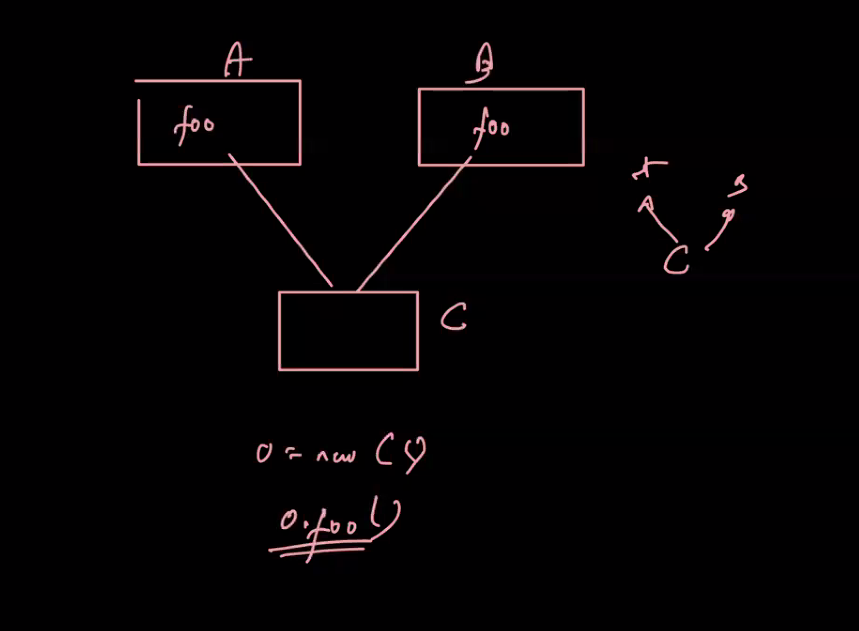 A B
foo foo
A B
C
C
o = new C()
o.foo()